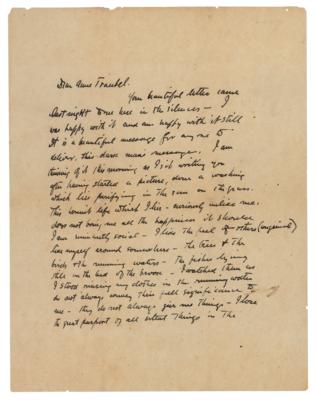 Dear Anne Traubel.
Your beautiful letter came
last night to me here in the silences – I
was happy with it and am happy with it still
It is a beautiful message for any one to
deliver, this dear man's message. I am
thinking of it this morning as I sit writing you
after having started a picture, done a washing
which lies purifying in the sun on the grass.
This hermit life which I live – seriously
does not bring me all the happiness it should
I am inherently social – I like the feel of others (congenial)
like myself around somewhere – the trees & the
birds & the running waters – the fishes lying
still in the bed of the brook – I watched them as
I stood rinsing my clothes in the running water
do not always convey their full significance to
me – they do not always give me things – I love
the great purport of all silent things in the